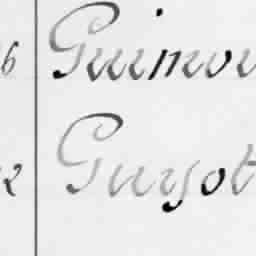 6 Guimou
2 Guyot